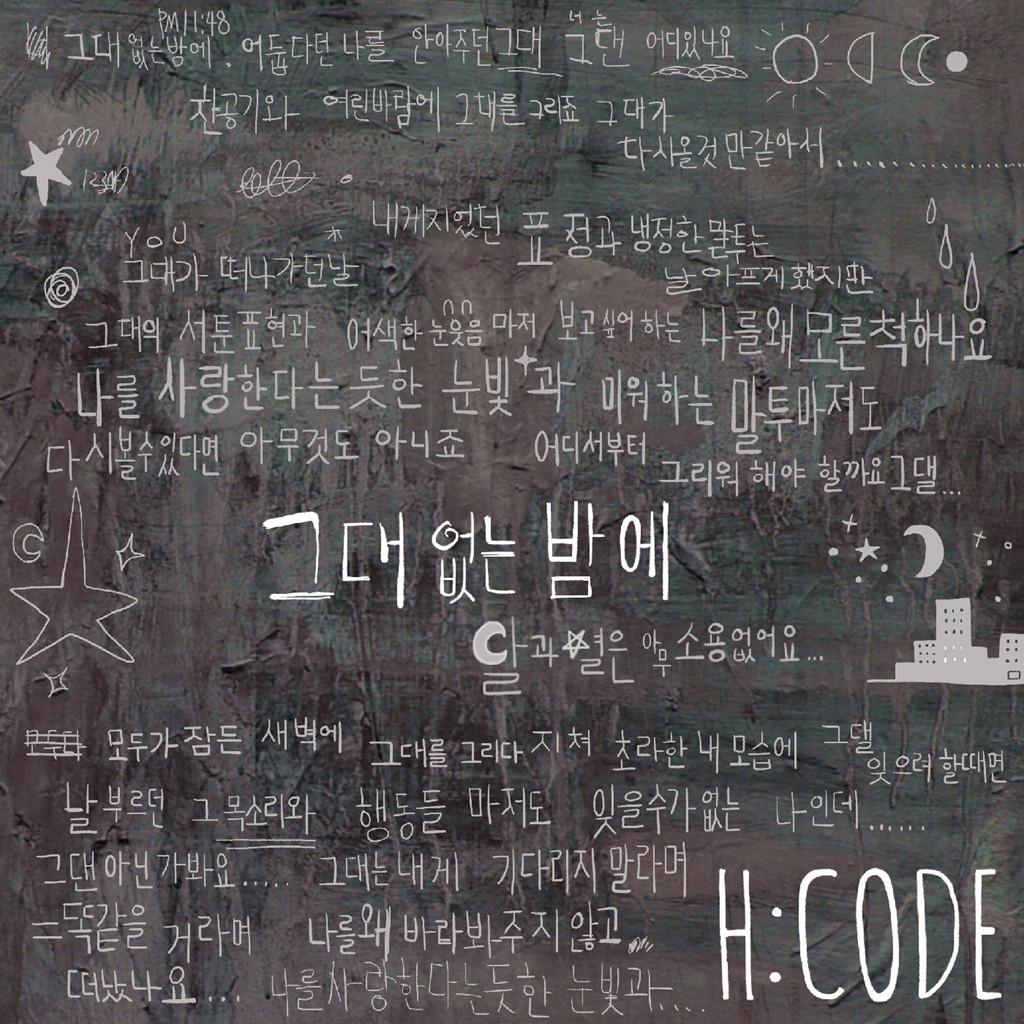 PM 11:48
너는
그대 없는 밤에. 어둡다던 나를 안아주던 그대 그댄 어디있나요
찬공기와 여린바람에 그대를 그리죠 그대가
다시올것만같아서..............
YOU
내게지었던 표정과 냉정한 말투는
그대가 떠나가던날
날 아프게 했지만
그대의 서툰표현과 어색한 눈웃음 마저 보고싶어 하는 나를 왜 모른척하나요
나를 사랑한다는듯한 눈빛과 미워하는 말투마저도
다시볼수있다면 아무것도 아니죠 어디서부터
그리워 해야 할까요 그댈...
그대 없는 밤에
달과 별은 아무 소용없어요...
모두가 잠든 새벽에 그대를 그리다 지쳐 초라한 내 모습에 그댈
잊으려 할때면
날 부르던 그 목소리와 행동들 마저도 잊을수가 없는 나인데......
그댄 아닌가봐요..... 그대는 내게 기다리지 말라며
똑같을 거라며 나를 왜 바라봐주지 않고
떠났나요... 나를 사랑한다는듯한 눈빛과....
H:CODE